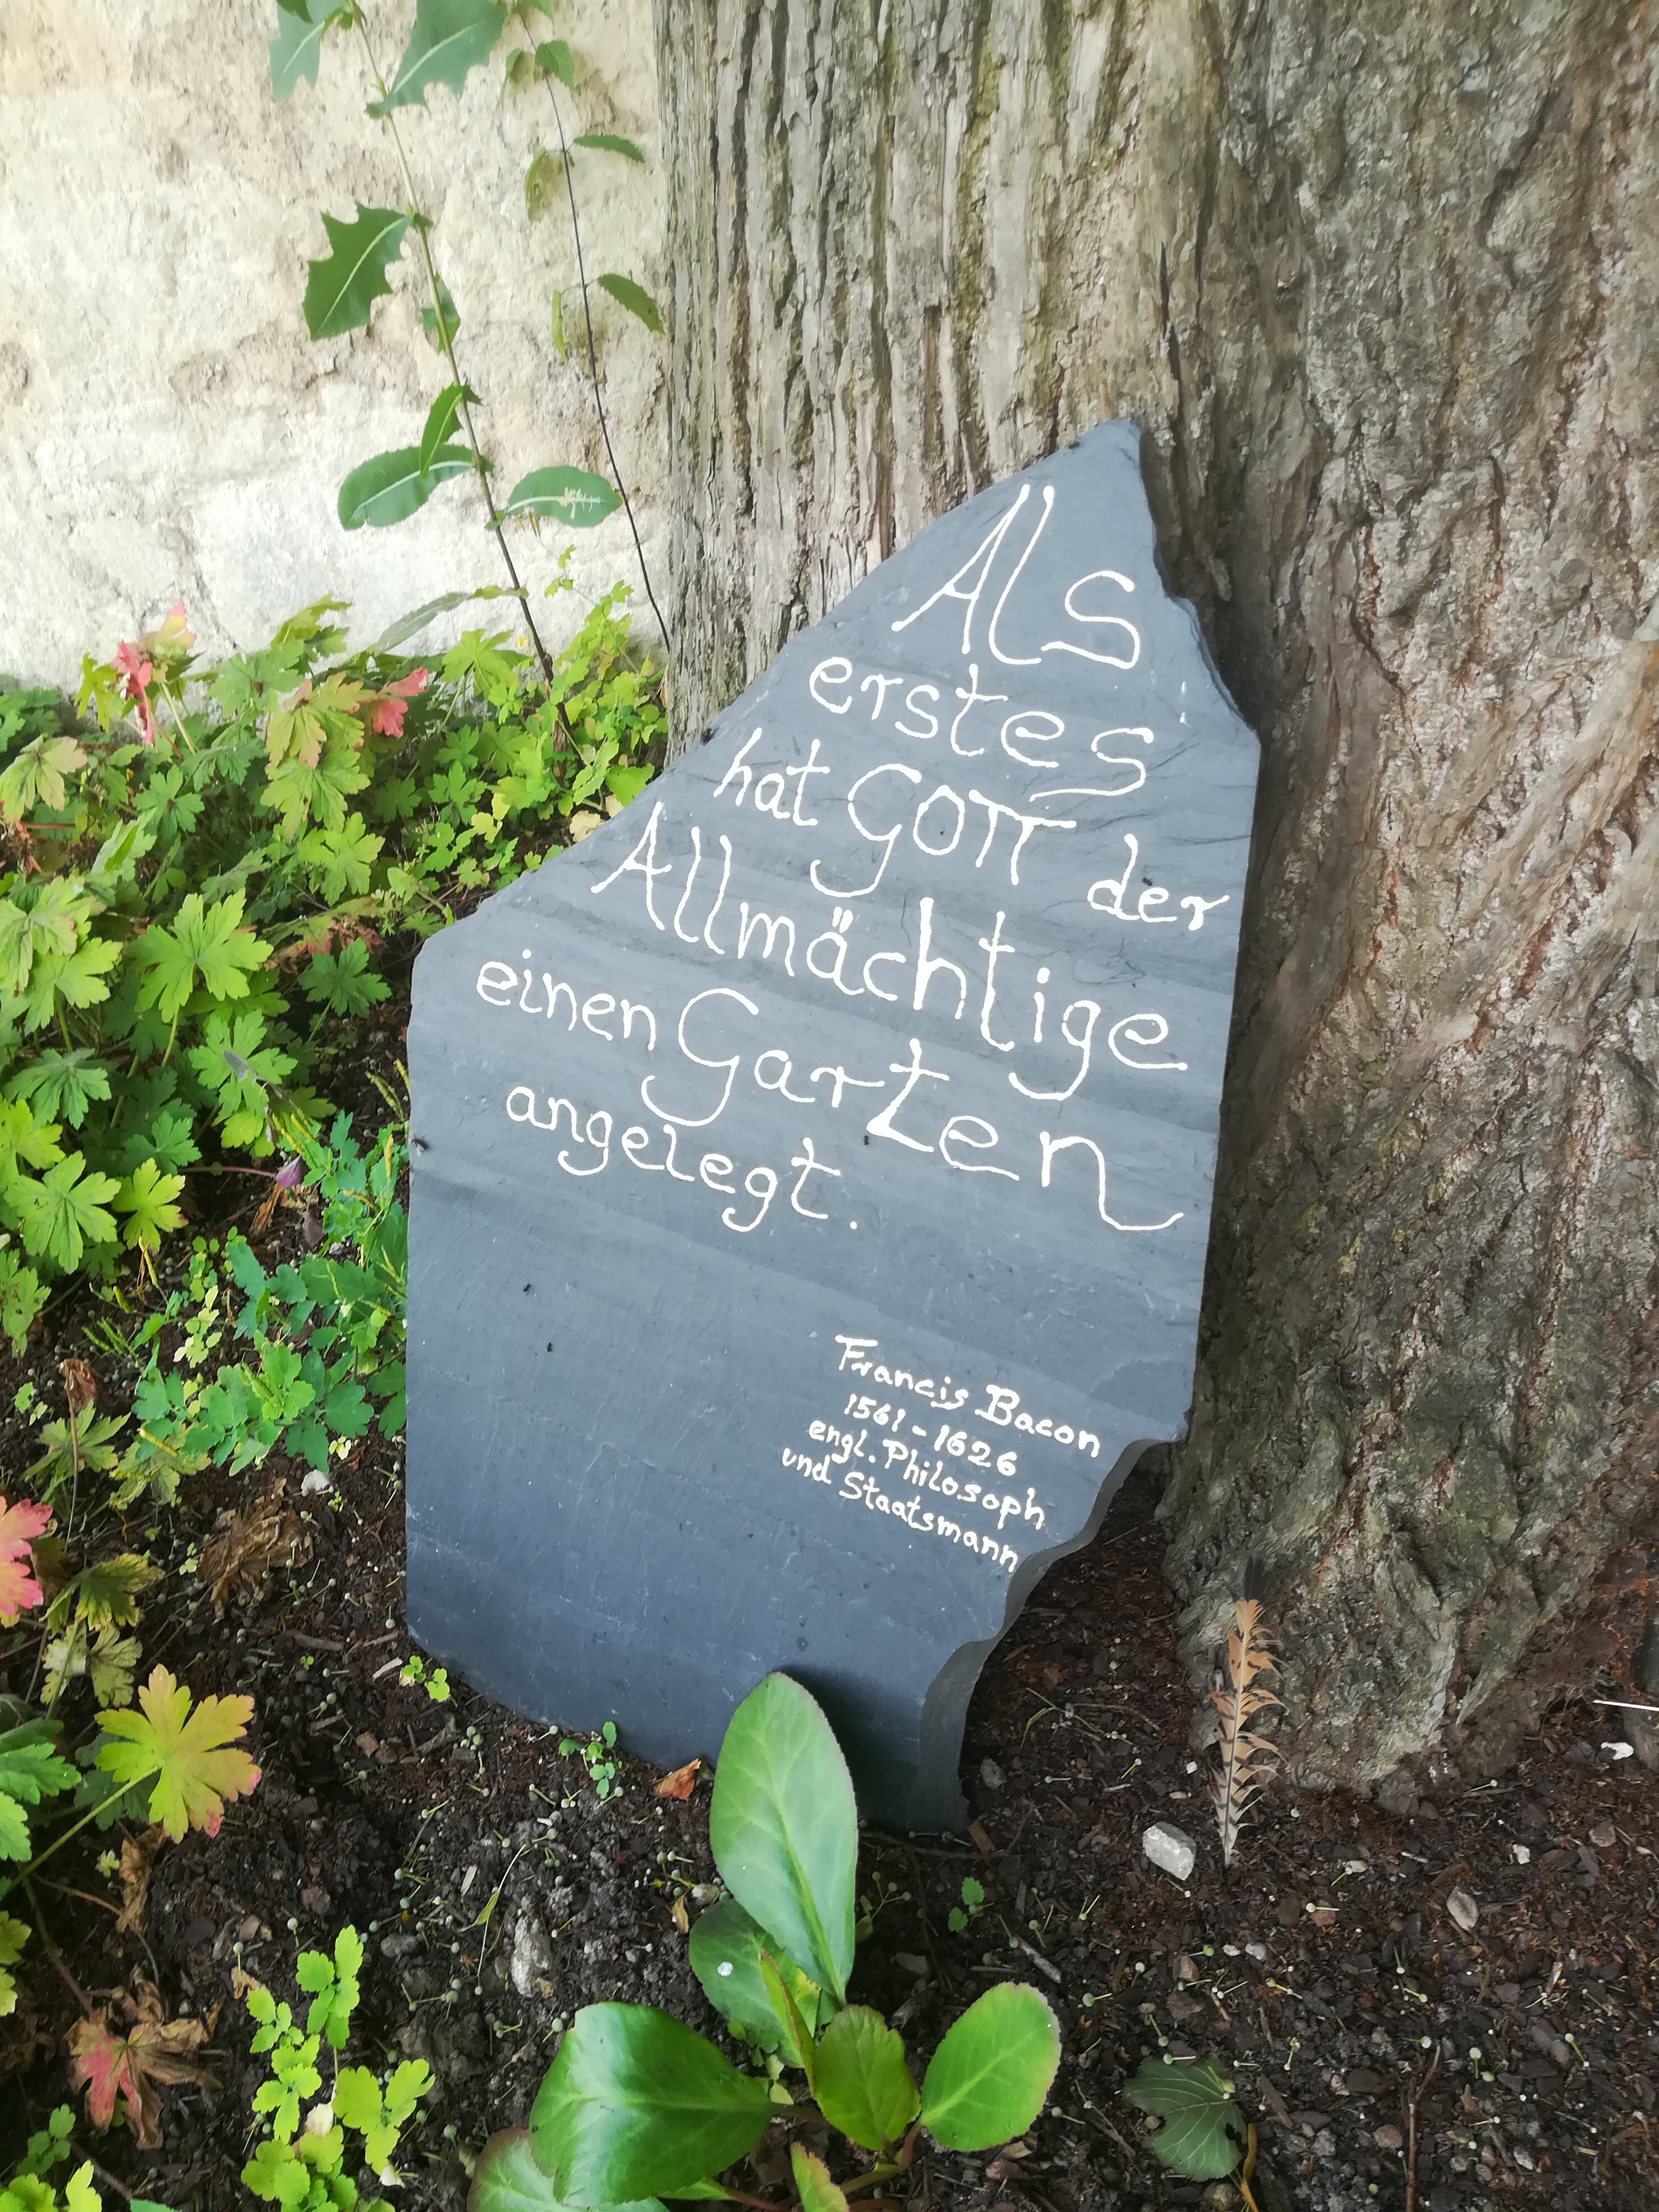 Als
erstes
hat GOTT der
Allmächtige
einen Garten
angelegt.
Francis Bacon
1561 - 1626
engl. Philosoph
und Staatsmann